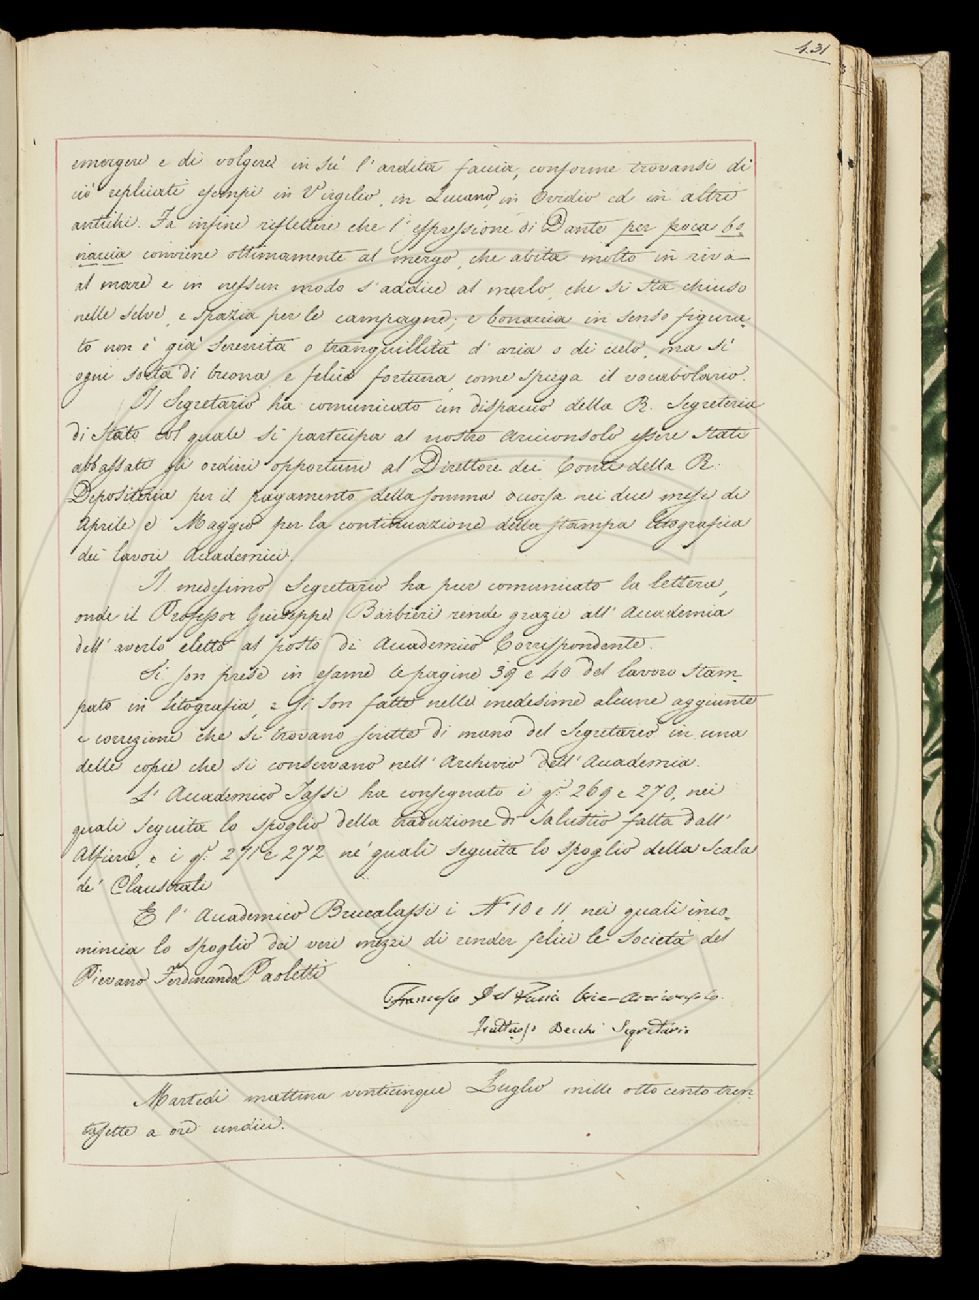 431
emergere e di volgere in su l'ardita faccia, conforme trovansi di
ciò replicati esempi in Virgilio, in Lucano, in Ovidio ed in altri
antichi. Fa infine riflettere che l'espressione di Dante per poca bo-
naccia conviene ottimamente al mergo, che abita molto in riva
al mare e in nessun modo s'addice al merlo, che si sta chiuso
nelle selve, e spazia per le campagne; e bonaccia in senso figura-
to non è già serenità o tranquillità d'aria o di cielo, ma sì
ogni sorta di buona e felice fortuna, come spiega il vocabolario.
Il Segretario ha comunicato un dispaccio della R. Segreteria
di Stato col quale si partecipa al nostro Arciconsolo essere stati
abbassati gli ordini opportuni al Direttore dei Conti della R.
Depositeria per il pagamento della somma occorsa nei due mesi di
Aprile e Maggio per la continuazione della stampa litografica
dei lavori Accademici.
Il medesimo Segretario ha pur comunicato la lettera,
onde il Professor Giuseppe Barbieri rende grazie all'Accademia
dell'averlo eletto al posto di Accademico Corrispondente.
Si son prese in esame le pagine 39 e 40 del lavoro stam-
pato in litografia, e si son fatte nelle medesime alcune aggiunte
e correzioni che si trovano scritte di mano del Segretario in una
delle copie che si conservano nell'Archivio dell'Accademia.
L'Accademico Tassi ha consegnato i q.i 269 e 270, nei
quali seguita lo spoglio della traduzione di Salustio fatta dall'
Alfieri, e i q.i 271 e 272 ne' quali seguita lo spoglio della Scala
de' Claustrali
E l'Accademico Brucalassi i N. 10 e 11, nei quali inco-
mincia lo spoglio dei veri mezzi di render felici le Società del
Pievano Ferdinando Paoletti
Francesco Del Furia Vice-Arciconsolo.
Fruttuoso Becchi Segretario
Martedì mattina venticinque Luglio mille otto cento tren-
tasette a ore undici.